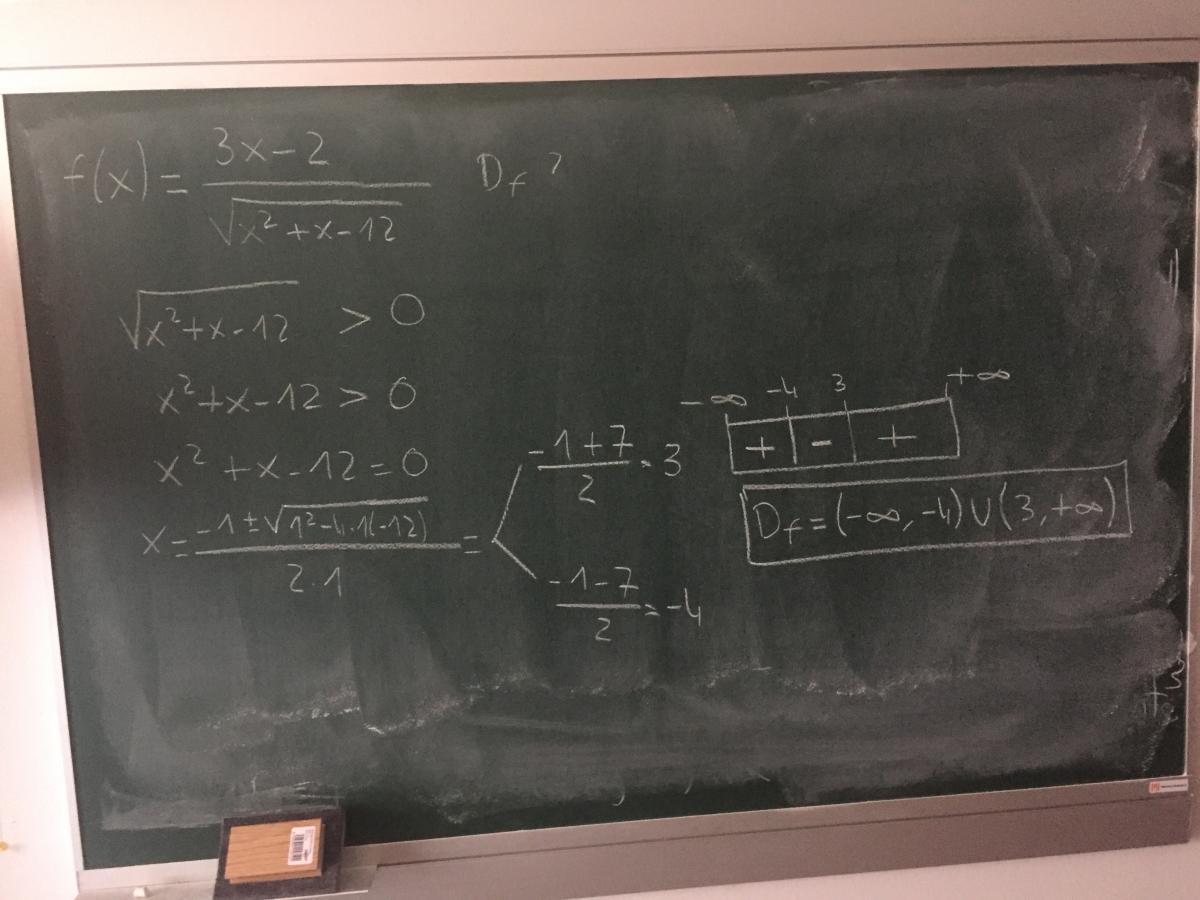 f(x) = (3x-2)/√(x²+x-12) Df ?
√(x²+x-12) > 0
x²+x-12 > 0
x²+x-12=0
x = (-1±√(1²-4·1(-12)))/(2·1) =
(-1+7)/2 = 3
(-1-7)/2 = -4
-∞ -4 3 +∞
+ - +
Df = (-∞, -4) ∪ (3, +∞)